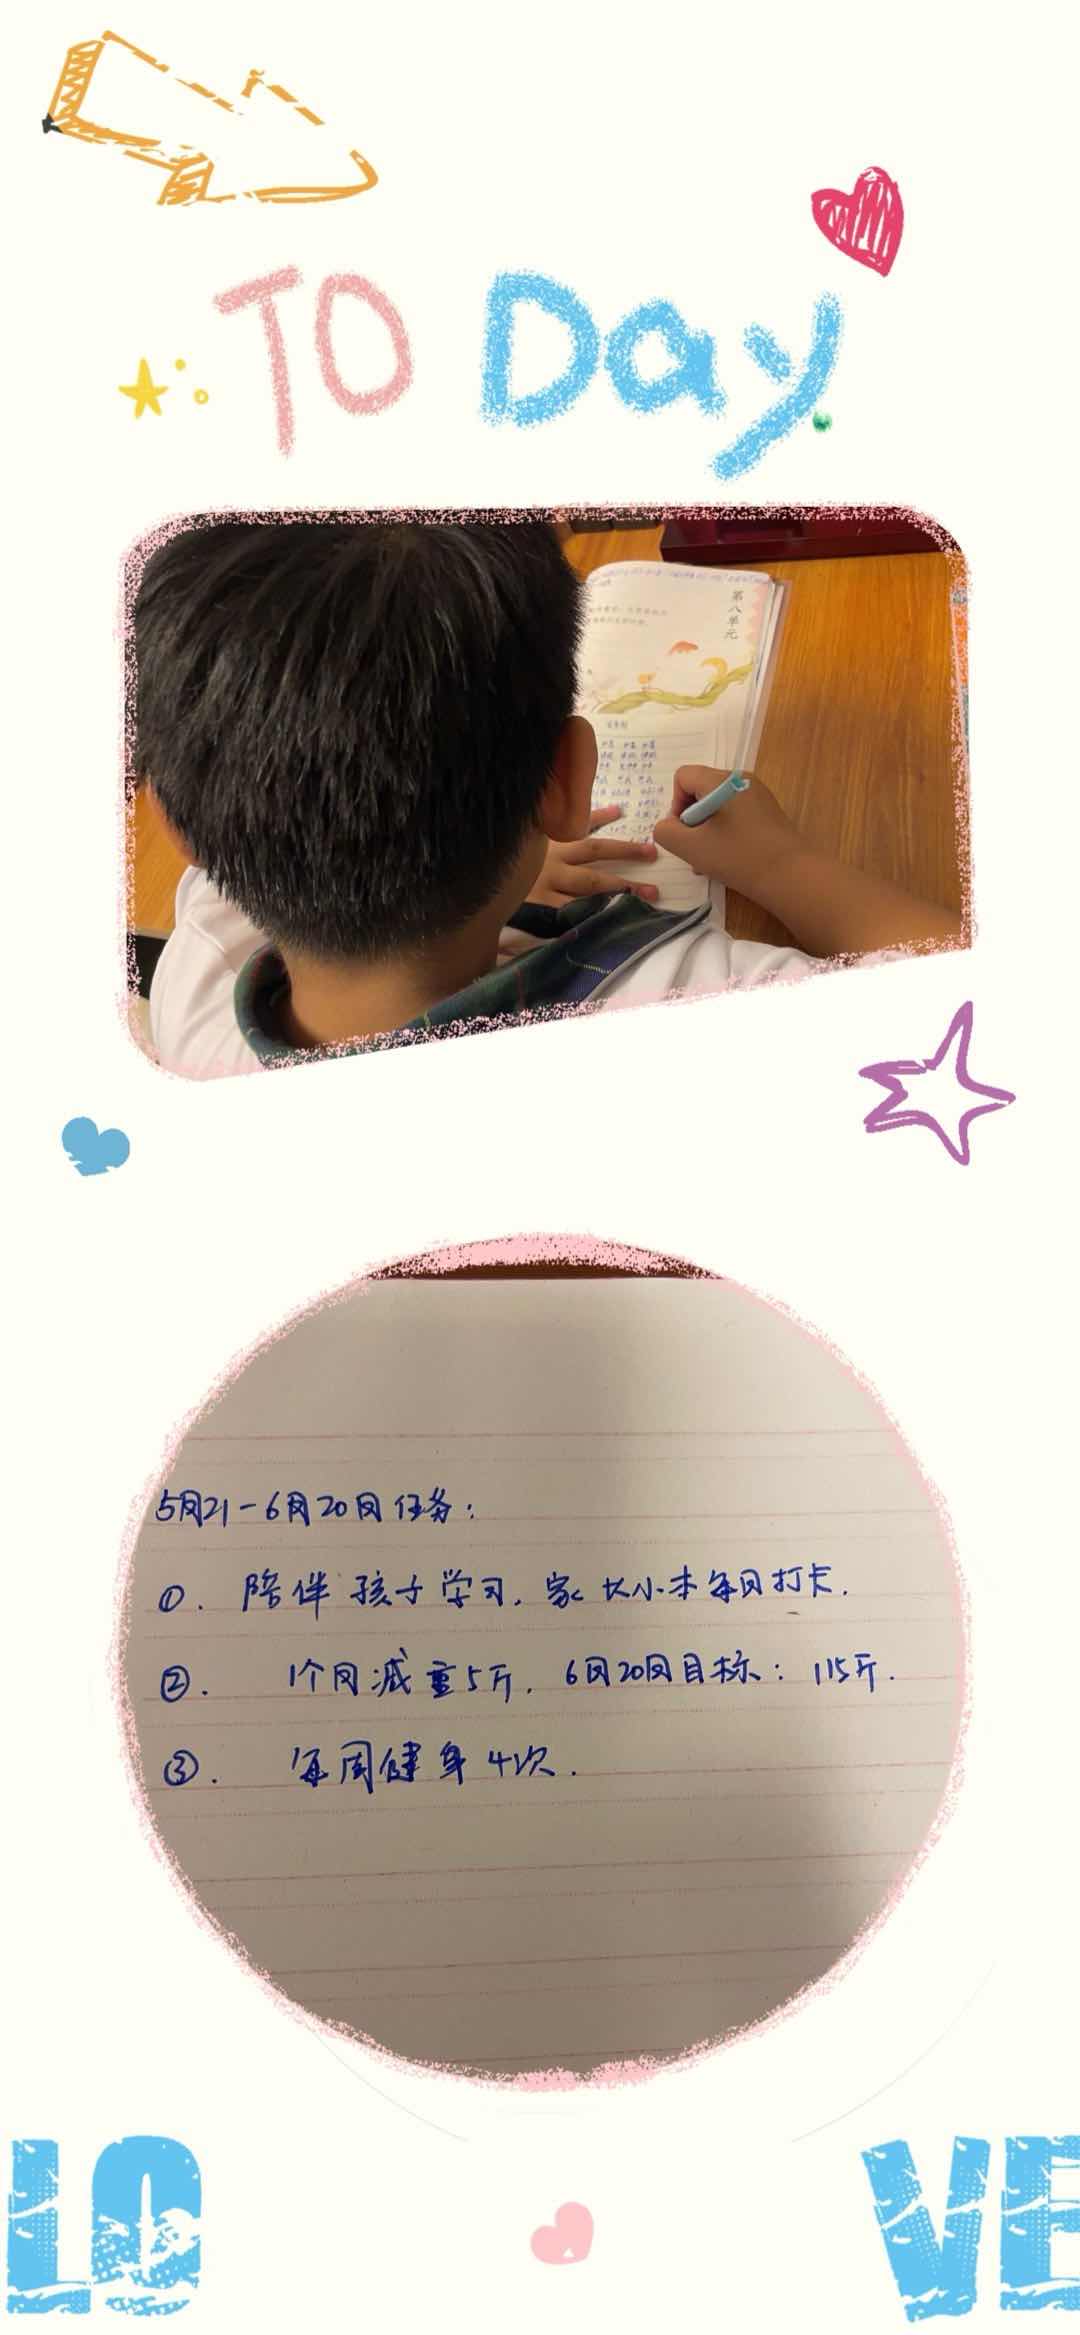 TO Day
第八单元
5月21-6月20日任务：
①. 陪伴孩子学习. 家长小本每日打卡.
②. 1个月减重5斤. 6月20日目标：115斤.
③. 每周健身4次.
LO VE